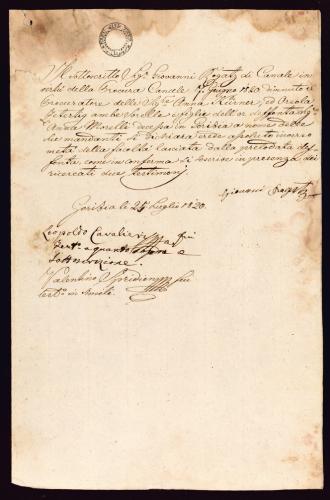 Il sottoscritto Sig.r Giovanni Rogatz di Canale in
virtù della Procura Canale 9. Giugno 1820. divenuto
Procuratore delle Sig.re Anna Kürner, ed Orsola
Peterly ambe sorelle e figlie dell'or defonta
Anna Morelli decessa in Gorizia a nome delle
sue mandanti si dichiara erede
metà della facoltà lasciata dalla prelodata de-
fonta, come in conforma si scrive in presenza dei
ricercati due testimonj
Giovanni Rogatz
Gorizia le 24 Luglio 1820.
Leopoldo Cavalieri fui
Test.o a quanto sopra e
Sottoscrizione.
Valentino Spridion fui
test.o in simile.